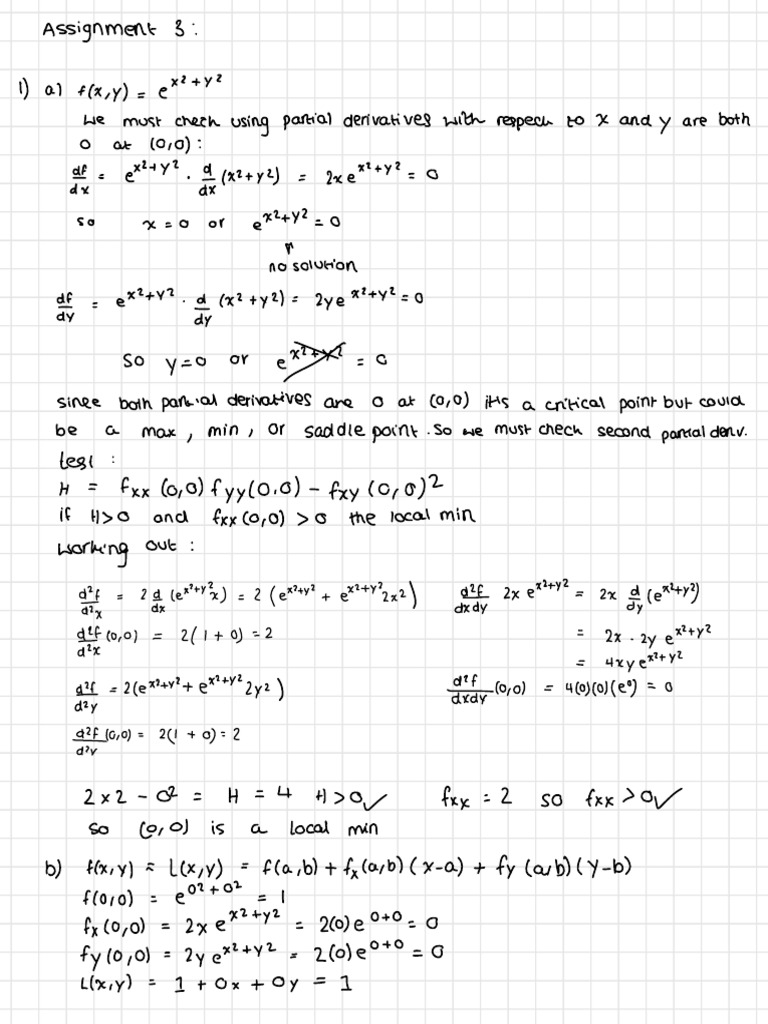 Assignment 3:
1) a) f(x,y) = e^{x²+y²}
We must check using partial derivatives with respect to x and y are both
0 at (0,0):
df/dx = e^{x²+y²} · d/dx (x²+y²) = 2xe^{x²+y²} = 0
so x = 0 or e^{x²+y²} = 0
no solution
df/dy = e^{x²+y²} · d/dy (x²+y²) = 2ye^{x²+y²} = 0
So y=0 or e^{x²+y²} = 0
since both partial derivatives are 0 at (0,0) its a critical point but could
be a max, min, or saddle point. So we must check second partial deriv.
test:
H = fxx (0,0) fyy(0,0) - fxy (0,0)²
if H>0 and fxx(0,0) > 0 the local min
working out:
d²f/d²x = 2 d/dx (e^{x²+y²}x) = 2 (e^{x²+y²} + e^{x²+y²}2x²)
d²f/d²x (0,0) = 2(1+0) = 2
d²f/d²y = 2(e^{x²+y²} + e^{x²+y²} 2y²)
d²f/d²y (0,0) = 2(1+0) = 2
d²f/dxdy 2x e^{x²+y²} = 2x d/dy (e^{x²+y²})
= 2x · 2y e^{x²+y²}
= 4xye^{x²+y²}
d²f/dxdy (0,0) = 4(0)(0)(e⁰) = 0
2×2 - 0² = H = 4 H>0✓ fxx = 2 so fxx>0✓
so (0,0) is a local min
b) f(x,y) ≈ L(x,y) = f(a,b) + fx(a,b)(x-a) + fy(a,b)(y-b)
f(0,0) = e^{0²+0²} = 1
fx(0,0) = 2xe^{x²+y²} = 2(0)e^{0+0} = 0
fy(0,0) = 2ye^{x²+y²} = 2(0)e^{0+0} = 0
L(x,y) = 1 + 0x + 0y = 1